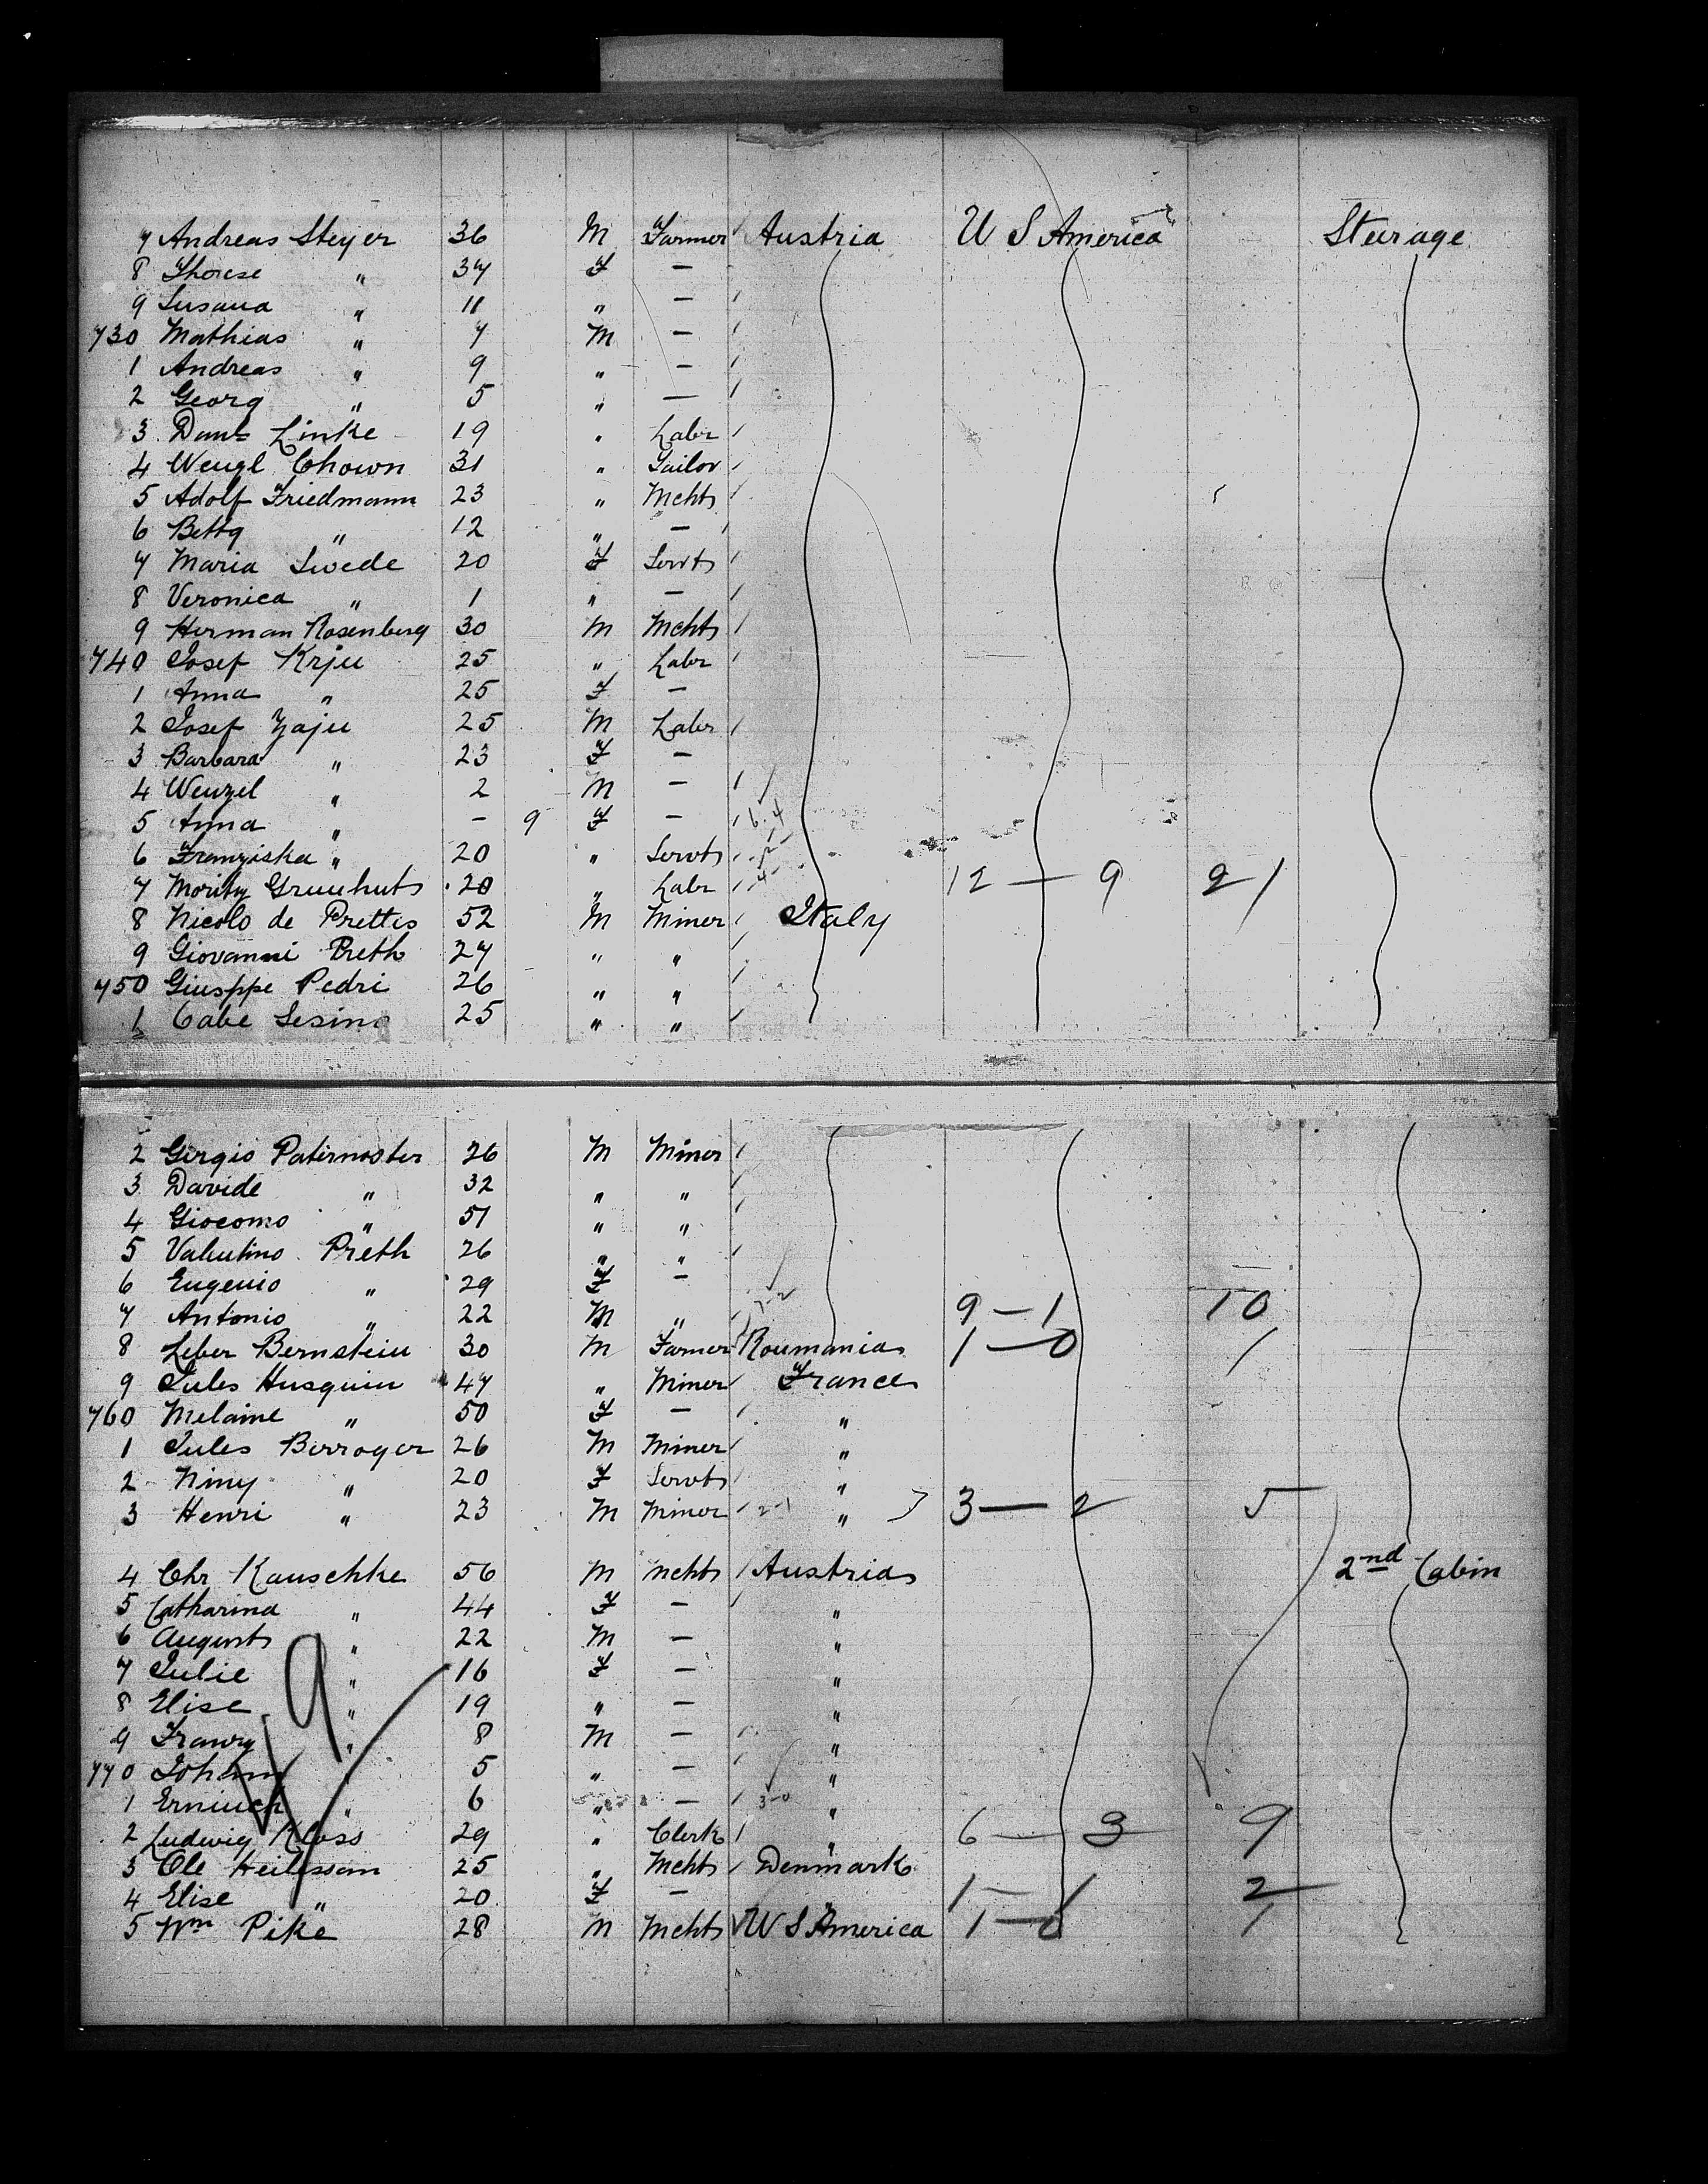 7 Andreas Steyer 36 M Farmer Austria U S America Stearage
8 Therese " 37 F —
9 Susana " 11 " —
730 Mathias " 7 M —
1 Andreas " 9 " —
2 Georg " 5 " —
3 Danl Linke 19 " Labr
4 Wengl Chown 31 " Tailor
5 Adolf Friedmann 23 " Mcht
6 Betty " 12 " —
7 Maria Swede 20 F Servt
8 Veronica " 1 " —
9 Herman Rosenberg 30 M Mcht
740 Josef Krju 25 " Labr
1 Anna " 25 F —
2 Josef Zaju 25 M Labr
3 Barbara " 23 F —
4 Wenzel " 2 M —
5 Anna " — 9 F — 6-4
6 Franziska " 20 " Servt
7 Moritz Grunhut 20 " Labr 12 — 9 21
8 Nicolo de Prettis 52 M Miner Italy
9 Giovanni Preth 27 " "
750 Giusppe Pedri 26 " "
1 Cabe Sesino 25 " "
2 Girgio Patirnoster 26 M Miner
3 Davide " 32 " "
4 Giocomo " 51 " "
5 Valentino Preth 26 " "
6 Eugenio " 29 F —
7 Antonio " 22 M " 9 — 1 10
8 Leber Bernstein 30 M Farmer Roumania 1 — 0 1
9 Jules Husquin 47 " Miner France
760 Melaine " 50 F — "
1 Jules Berroger 26 M Miner "
2 Niny " 20 F Servt "
3 Henri " 23 M Miner 2-1 " 3 — 2 5
4 Chr Kauschke 56 M Mcht Austria 2nd Cabin
5 Catharina " 44 F — "
6 August " 22 M — "
7 Julie " 16 F — "
8 Elise " 19 " — "
9 Franz " 8 M — "
770 Johann " 5 " — "
1 " 6 " — 3-0 "
2 Ludwig Kloss 29 " Clerk " 6 — 3 9
3 Ole 25 " Mcht Denmark
4 Elise " 20 F — " 1 — 1 2
5 Wm Pike 28 M Mcht U S America 1 — 0 1
9